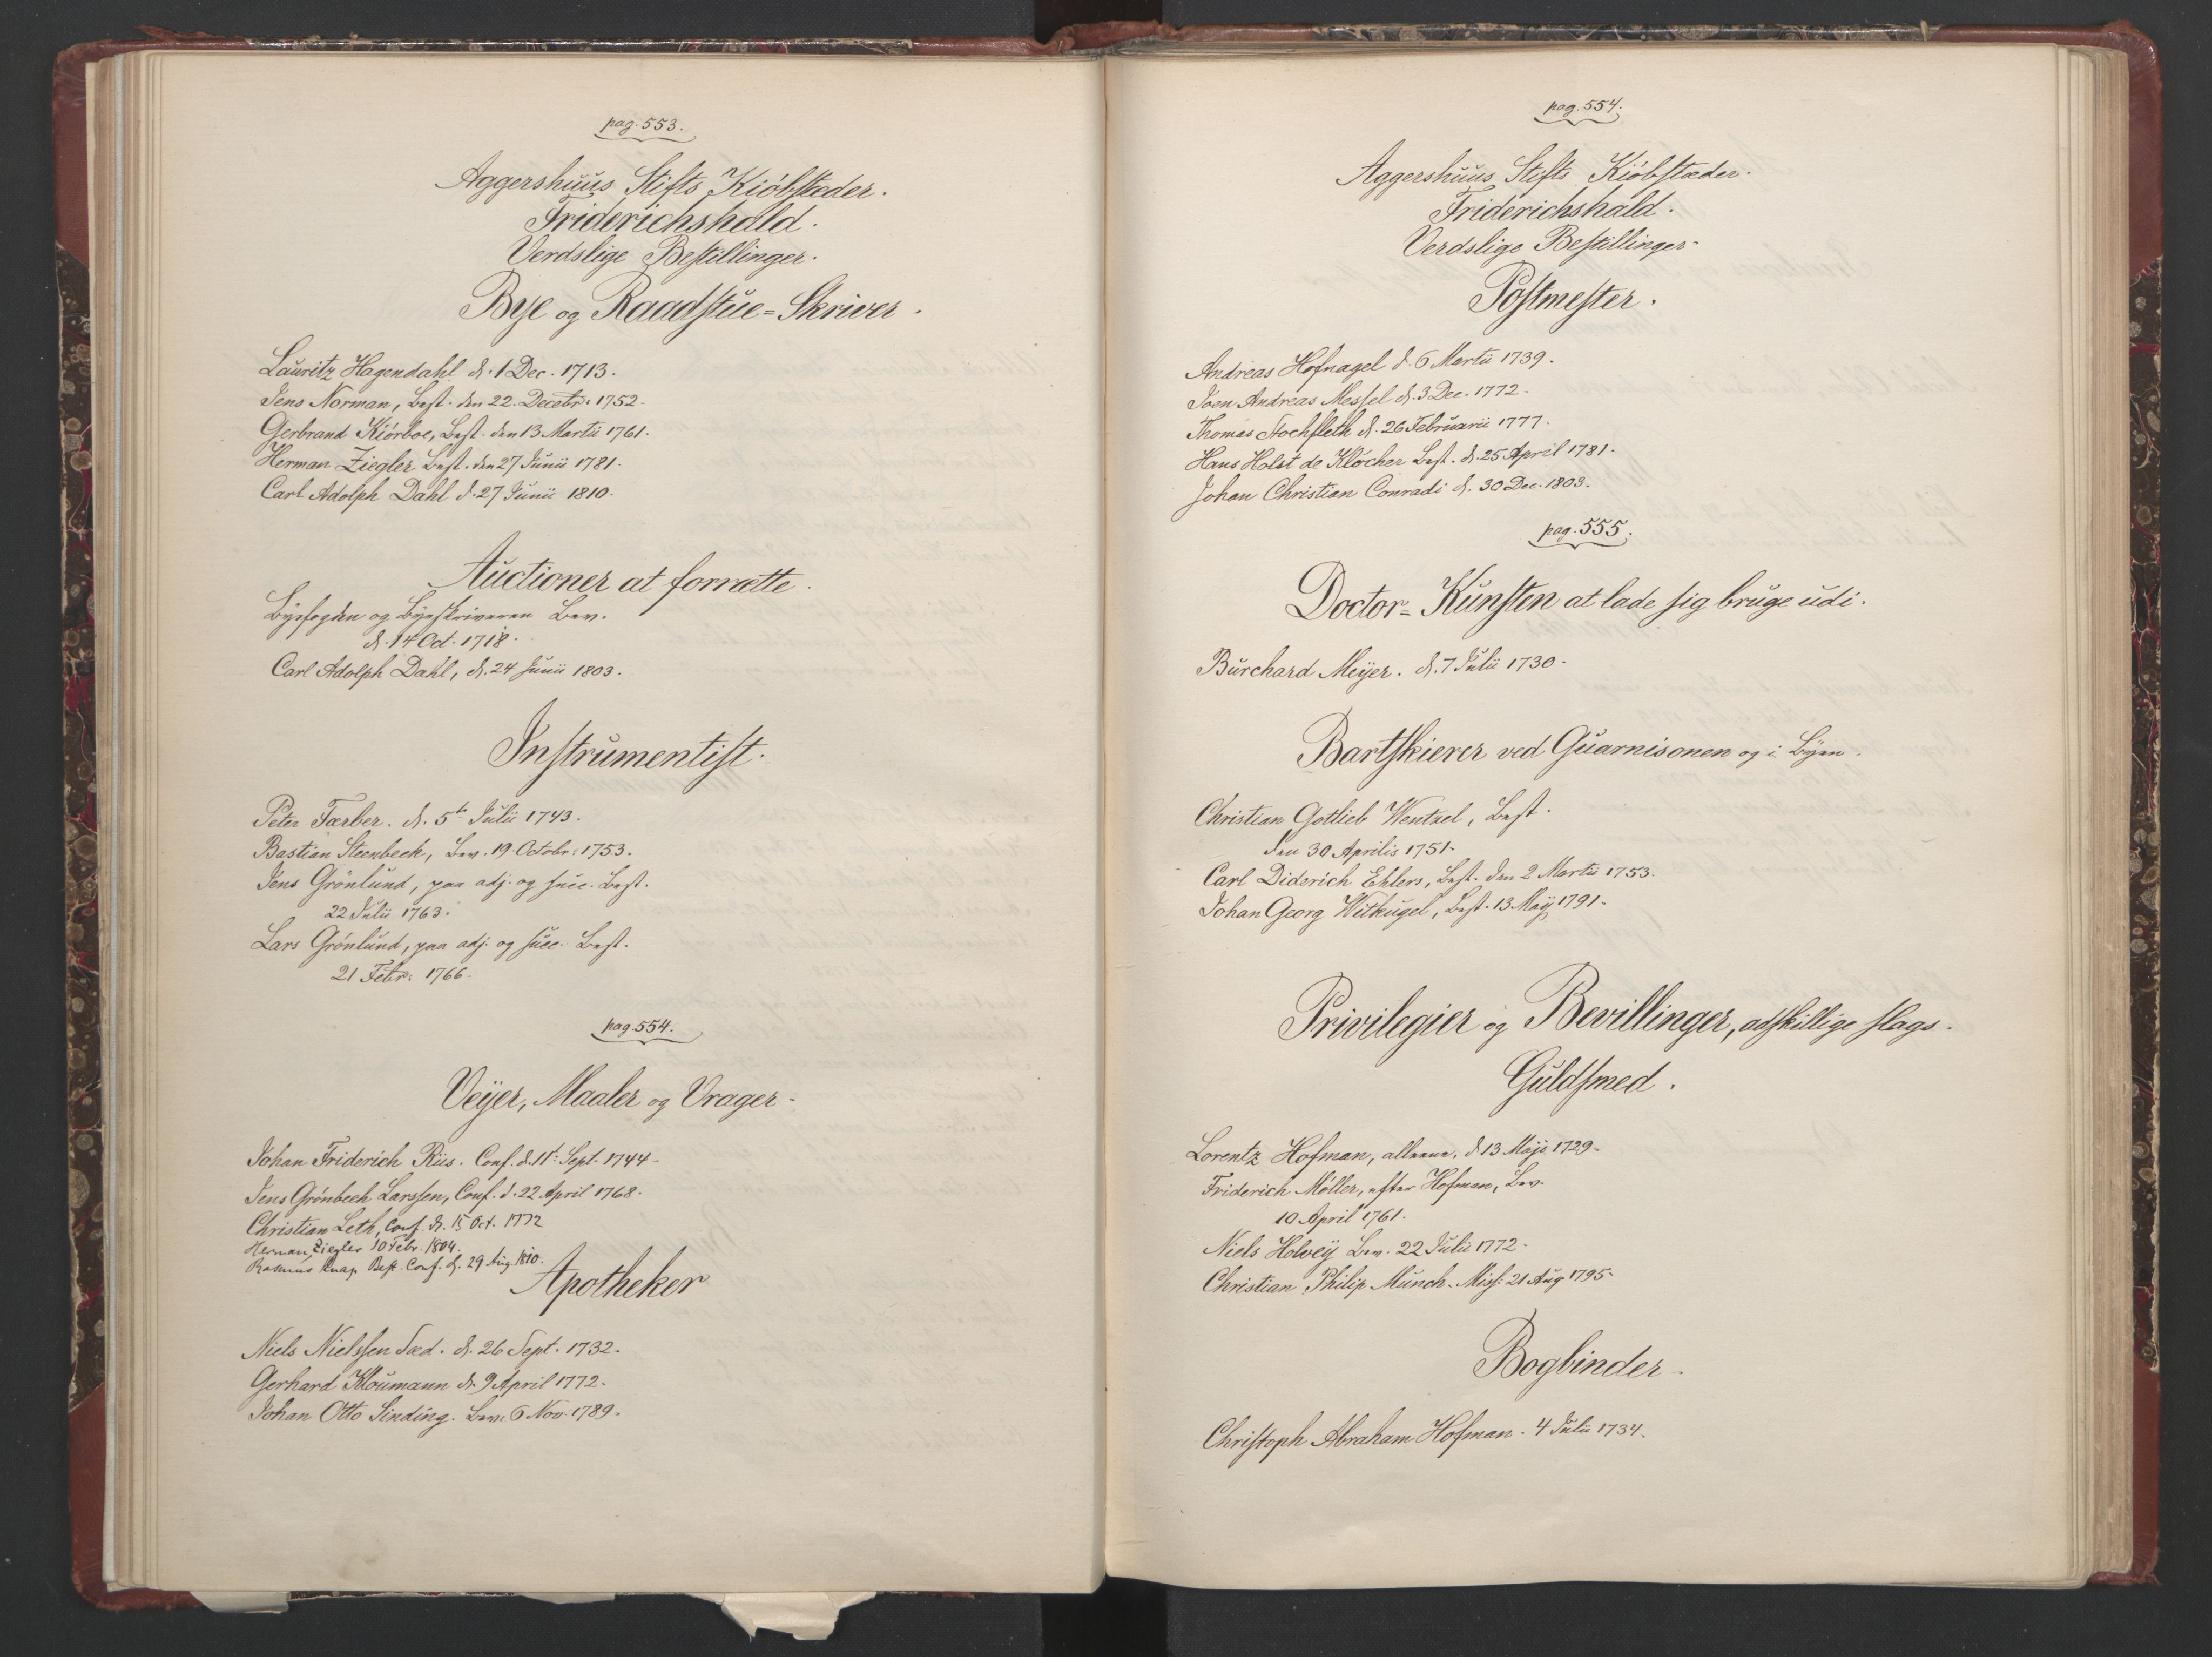 pag. 553.
Aggershuus Stifts Kiøbstæder.
Friderichshald.
Verdslige Bestillinger.
Bye og Raadstue=Skriver.
Lauritz Hagendahl d. 1 Dec. 1713.
Jens Norman, Best. den 22. Decebr. 1752.
Gerbrand Kiørboe, Best. den 13 Martii 1761.
Herman Ziegler Best. den 27 Junii 1781.
Carl Adolph Dahl d. 27 Junii 1810.
Auctioner at forrætte.
Byefogden og Byeskriveren Bev.
d. 14 Oct. 1718.
Carl Adolph Dahl, d. 24 Junii 1803.
Instrumentist.
Peter Færber. d. 5te Julii 1743.
Bastian Steenbeck, Bev. 19. Octobr: 1753.
Jens Grönlund, paa adj. og succ. Best.
22 Julii 1763.
Lars Grönlund, paa adj. og succ. Best.
21 Febr: 1766.
pag. 554.
Veyer, Maaler og Vrager.
Johan Friderich Riis. Conf. d. 11t Sept. 1744.
Jens Grönbech Larssen, Conf. d. 22 April 1768.
Christian Leth, Conf. d. 15 Oct. 1772
Herman Ziegler 10 Febr. 1804.
Rasmus Knap Best. Conf. d. 29 Aug. 1810.
Apotheker
Niels Nielssen Sæd. d. 26 Sept. 1732.
Gerhard Kloumann d. 9 April 1772.
Johan Otto Sinding. Bev. 6 Nov. 1789.
pag. 554.
Aggershuus Stifts Kiøbstæder.
Friderichshald.
Verdslige Bestillinger.
Postmester.
Andreas Hofnagel d. 6 Martii 1739.
Joen Andreas Messel d. 3 Dec. 1772.
Thomas Stochfleth d. 26 Februarii 1777.
Hans Holst de Kløcher Best. d. 25 April 1781.
Johan Christian Conradi d. 30 Dec. 1803.
pag. 555.
Doctor=Kunsten at lade sig bruge udi.
Burchard Meyer. d. 7 Julii 1730.
Bartskierer ved Guarnisonen og i Byen.
Christian Gottlieb Wentzel, Best.
den 30 Aprilis 1751.
Carl Diderich Ehlers, Best. den 2 Martii 1753.
Johan Georg Witkugel, Best. 13 Maij 1791.
Privilegier og Bevillinger, adskillige slags.
Guldsmed.
Lorentz Hofman, alleene, d. 13 Maji 1729.
Friderich Møller, efter Hofman, Bev.
10 April 1761.
Niels Holveÿ Bev. 22 Julii 1772.
Christian Philip Munch. Miss: 21 Aug 1795.
Bogbinder.
Christoph Abraham Hofman. 4 Julii 1734.